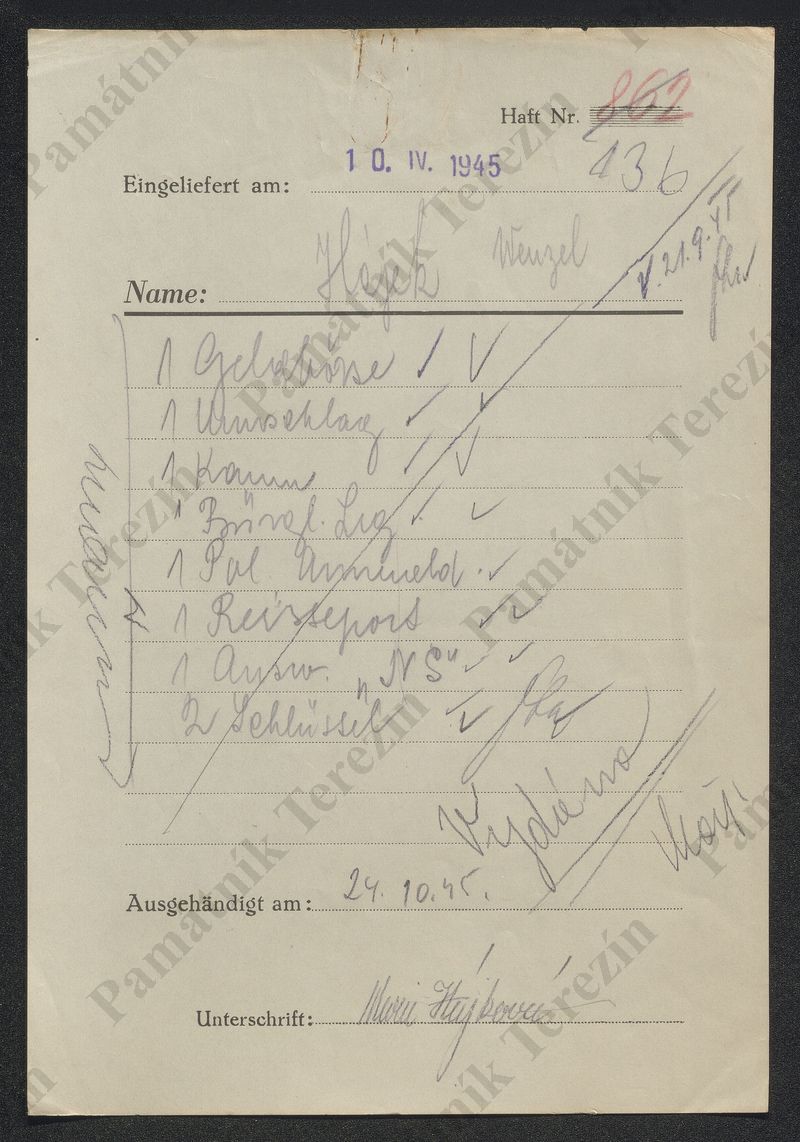 Haft Nr. 862
136
Eingeliefert am: 10. IV. 1945
Name: Hájek Wenzel
V. 21.9.45
1 Geldbörse
1 Umschlag
1 Kamm
1 Bürgl. Leg.
1 Pol. Anmeld.
1 Reisseport
1 Ausw. „NS"
2 Schlüssel
Vydáno
Ausgehändigt am: 24. 10. 45.
Unterschrift: Marie Hájková
Památník Terezín